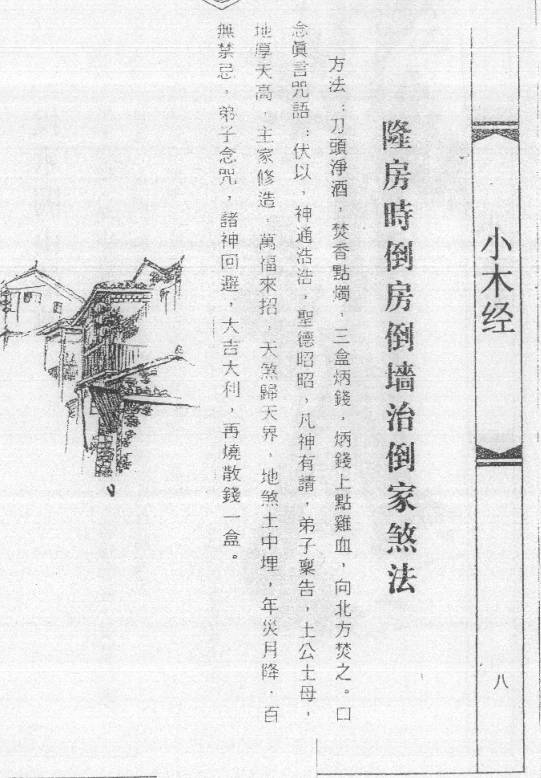 小木经
八
隆房時倒房倒墻治倒家煞法
方法：刀頭淨酒，焚香點燭，三盒炳錢，炳錢上點雞血，向北方焚之。口
念眞言咒語：伏以，神通浩浩，聖德昭昭，凡神有請，弟子稟告，土公土母，
地厚天高，主家修造，萬福來招，天煞歸天界，地煞土中埋，年災月降，百
無禁忌，弟子念咒，諸神回避，大吉大利，再燒散錢一盒。